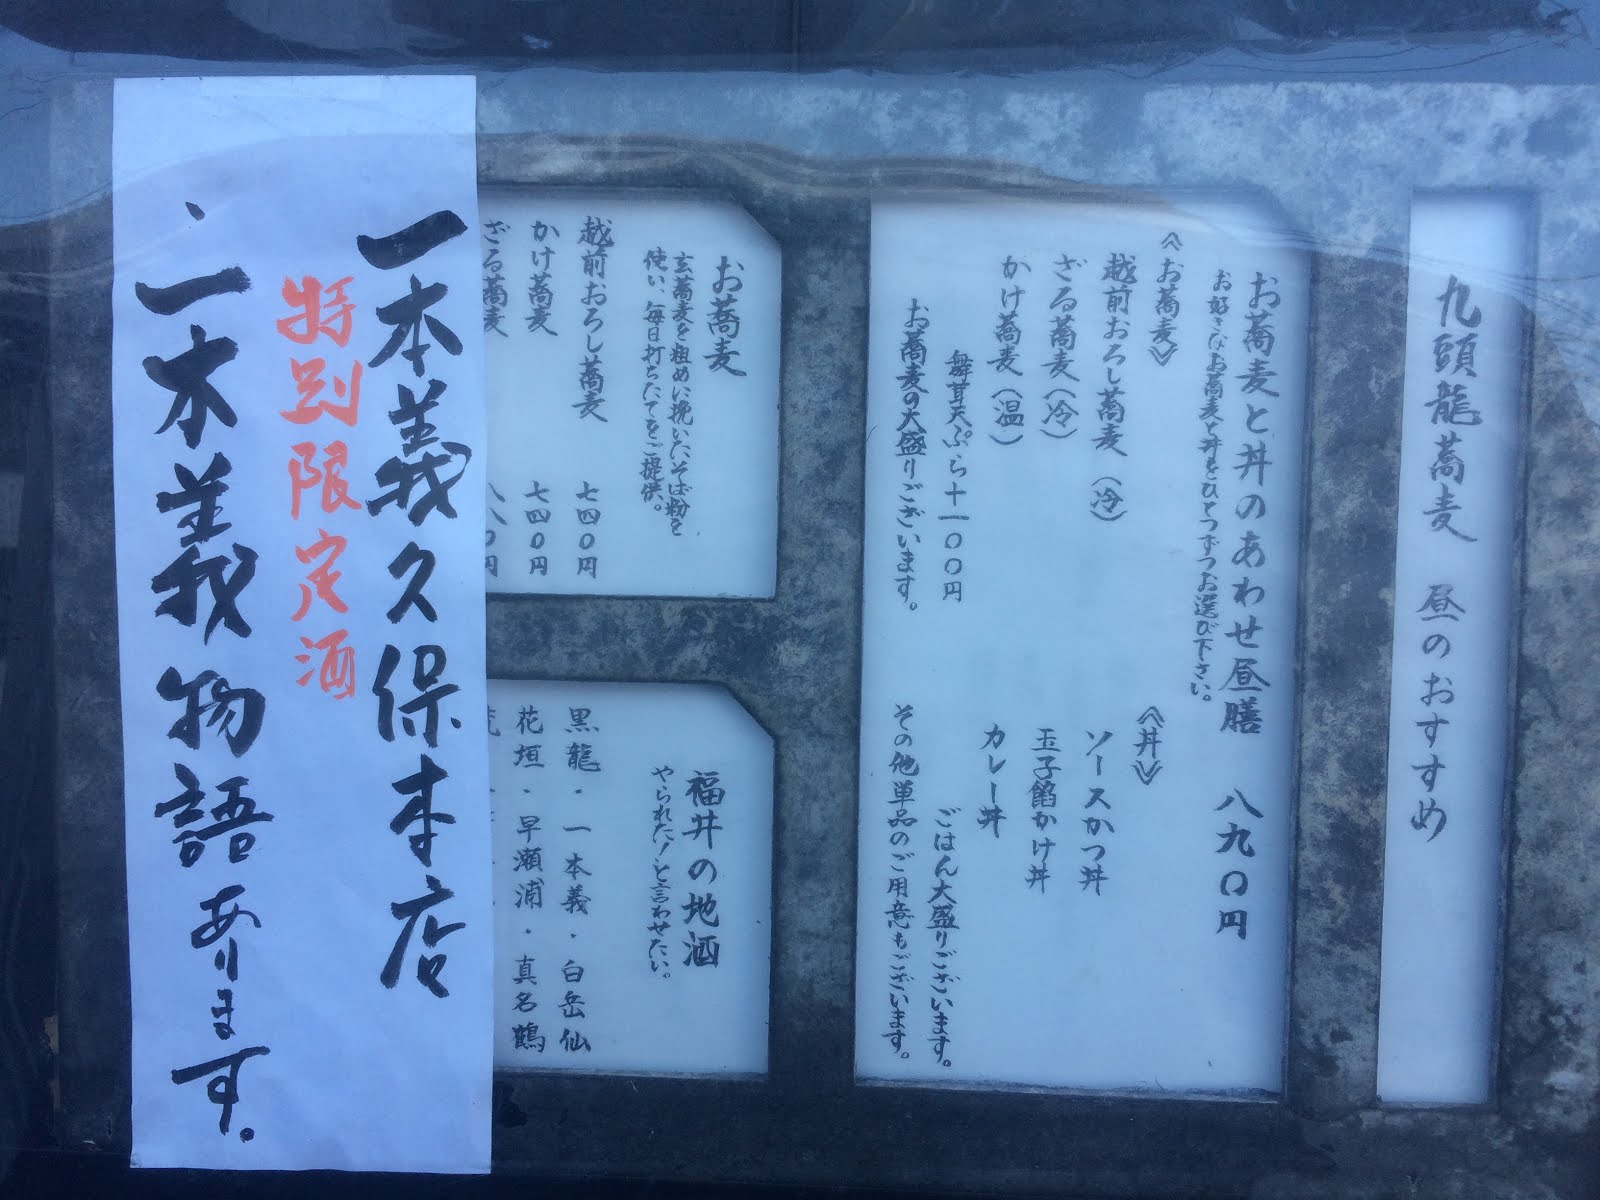 九頭龍蕎麦 昼のおすすめ
お蕎麦と丼のあわせ昼膳 八九〇円
お好きなお蕎麦と丼をひとつずつお選び下さい。
《お蕎麦》
越前おろし蕎麦(冷)
ざる蕎麦(冷)
かけ蕎麦(温)
舞茸天ぷら十一〇〇円
お蕎麦の大盛りございます。
《丼》
ソースかつ丼
玉子餡かけ丼
カレー丼
ごはん大盛りございます。
その他単品のご用意もございます。
お蕎麦
玄蕎麦を粗めに挽いたそば粉を
使い、毎日打ちたてをご提供。
越前おろし蕎麦 七四〇円
かけ蕎麦 七四〇円
ざる蕎麦 八八〇円
福井の地酒
やられた!と言わせたい。
黒龍・一本義・白岳仙
花垣・早瀬浦・真名鶴
一本義久保本店
特別限定酒
、一本義物語あります。